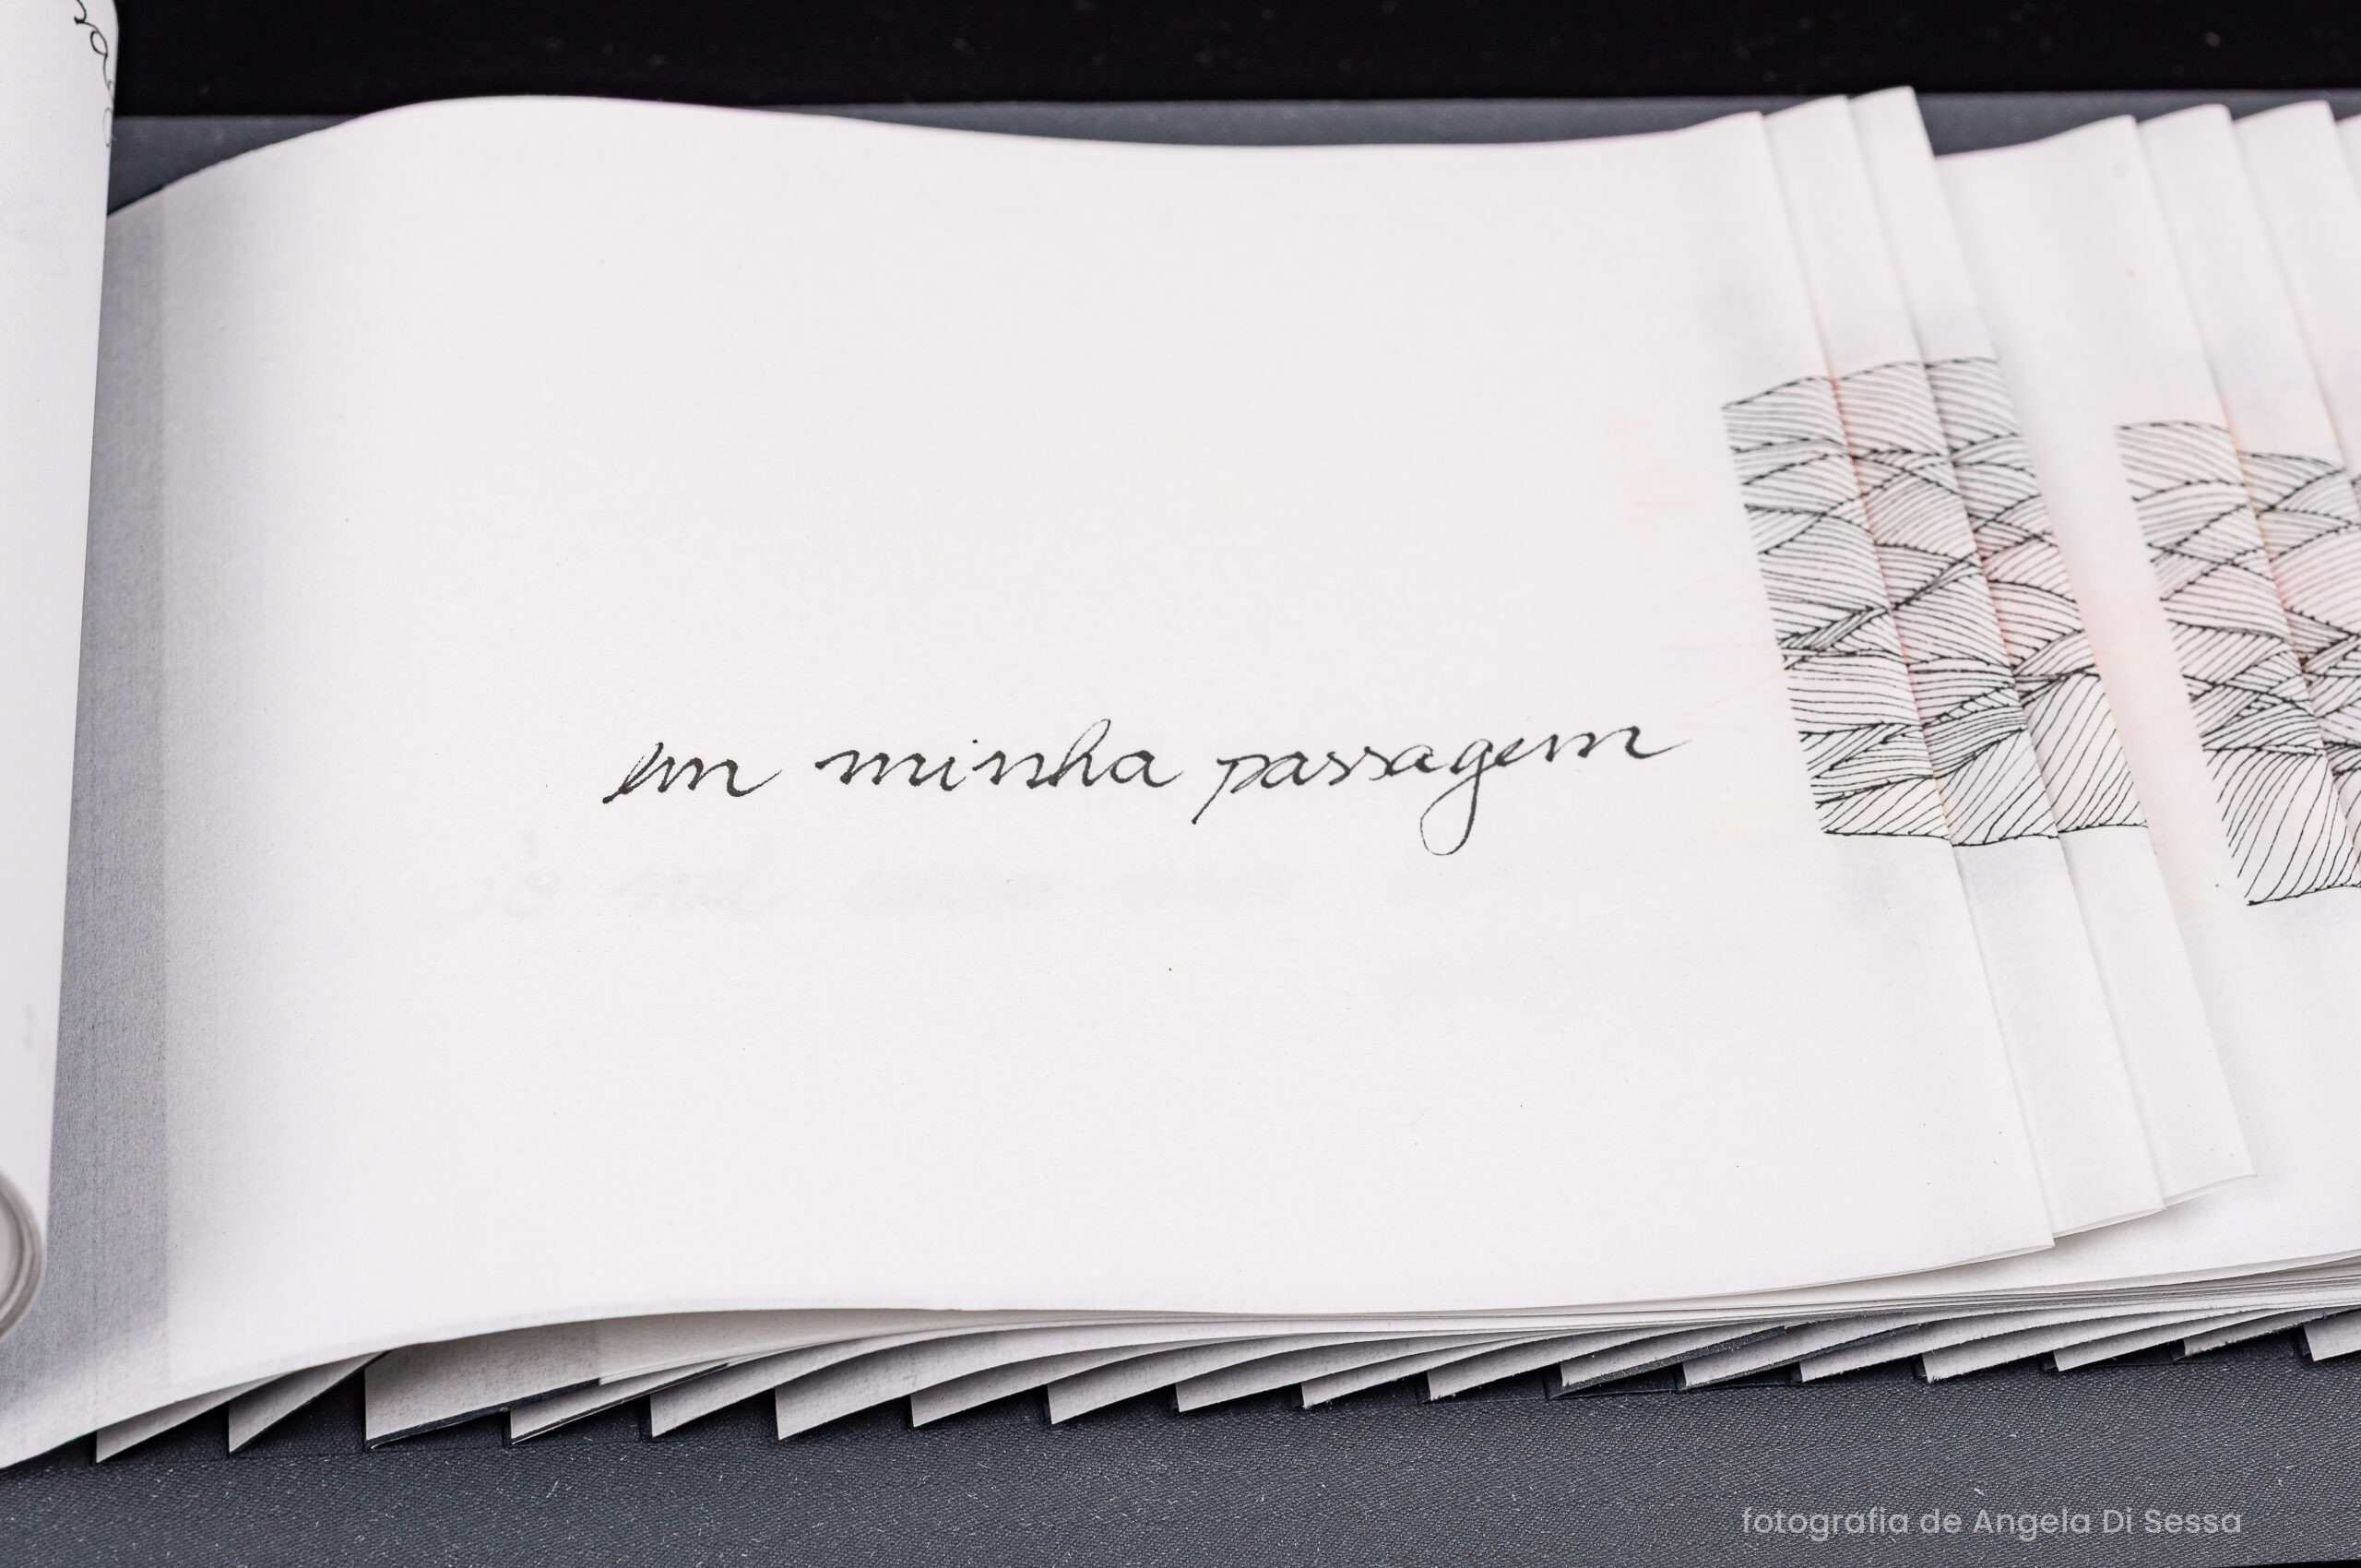 em minha passagem
fotografia de Angela Di Sessa